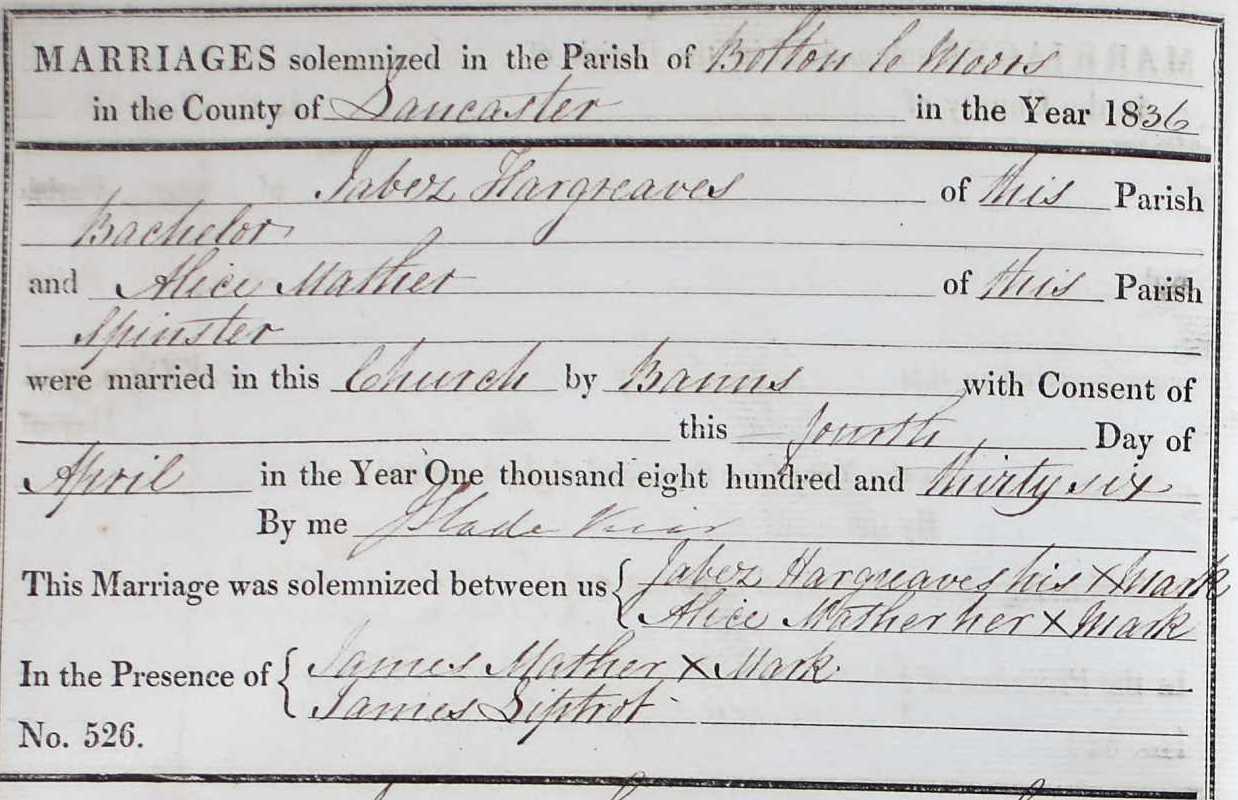 MARRIAGES solemnized in the Parish of Bolton le Moors
in the County of Lancaster in the Year 1836
Jabez Hargreaves of this Parish
Bachelor
and Alice Mather of this Parish
Spinster
were married in this Church by Banns with Consent of
this fourth Day of
April in the Year One thousand eight hundred and thirty six
By me Slade Vicar
This Marriage was solemnized between us { Jabez Hargreaves his X Mark
Alice Mather her X Mark
In the Presence of { James Mather X Mark
James Liptrot
No. 526.